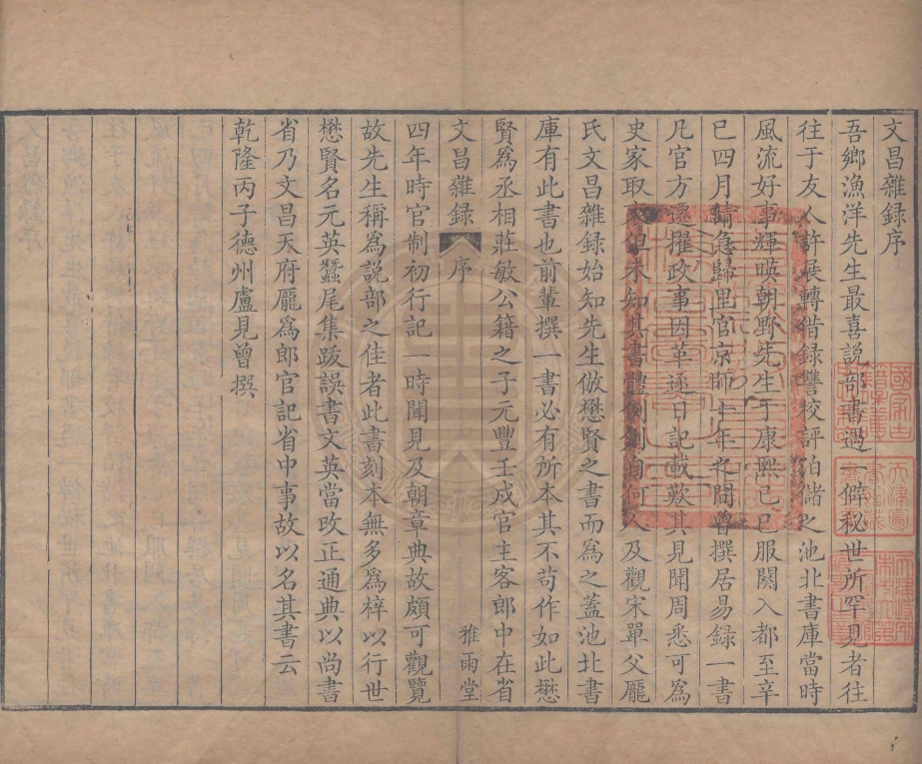 文昌雜録序
吾鄉漁洋先生最喜説部書遇一僻秘世所罕見者往
往于友人許展轉借録讐校評泊儲之池北書庫當時
風流好事輝暎朝野先生于康熙己巳服闋入都至辛
巳四月請急歸里官京師十年之間曾撰居易録一書
凡官方遷擢政事因革逐日記載歎其見聞周悉可爲
史家取 但未知其書體例創自何人及觀宋單父龎
氏文昌雜録始知先生倣懋賢之書而爲之蓋池北書
庫有此書也前輩撰一書必有所本其不苟作如此懋
賢爲丞相莊敏公籍之子元豐壬戌官主客郎中在省
文昌雜録 序 雅雨堂
四年時官制初行記一時聞見及朝章典故頗可觀覽
故先生稱爲説部之佳者此書刻本無多爲梓以行世
懋賢名元英蠶尾集跋誤書文英當改正通典以尚書
省乃文昌天府龎爲郎官記省中事故以名其書云
乾隆丙子德州盧見曾撰